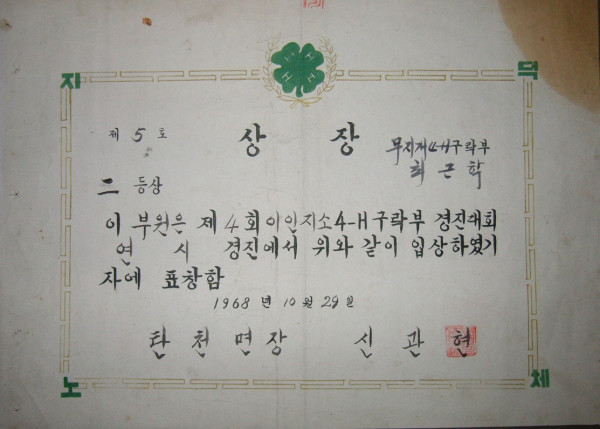 지 덕
H H H H
제 5 호
상 장
무지개4-H구락부
최근학
二 등상
이 부원은 제 4 회 이인지소 4-H 구락부 경진대회
연 시 경진에서 위와 같이 입상하였기
자에 표창함
1968 년 10 월 29 일
탄 천 면 장 신 관 현
노 체